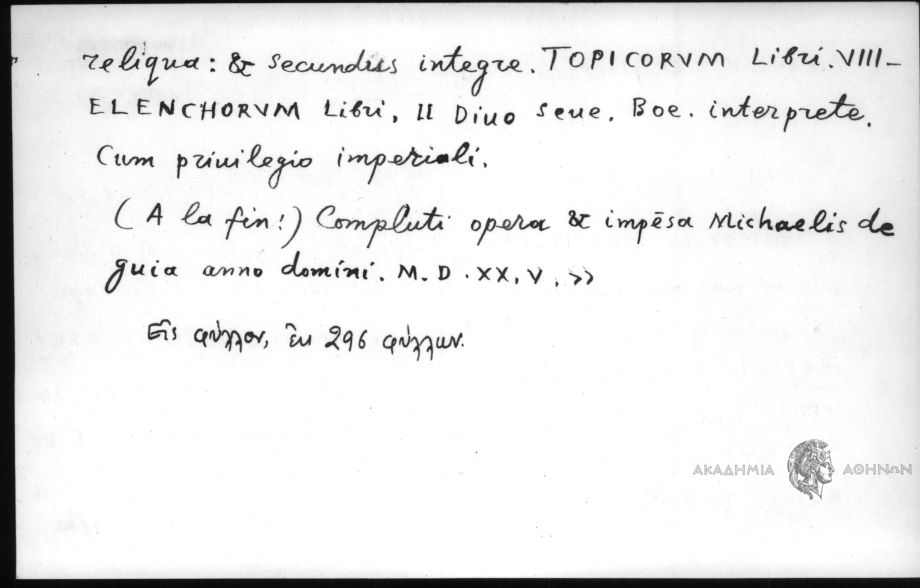 reliqua: & secundus integre. TOPICORVM Libri. VIII_
ELENCHORVM Libri, II Diuo Seue. Boe. interprete.
Cum priuilegio imperiali.
(A la fin:) Compluti opera & impēsa Michaelis de
guia anno domini. M. D. XX. V. >>
Εἰς φύλλον, ἐν 296 φύλλων.
ΑΚΑΔΗΜΙΑ ΑΘΗΝΩΝ